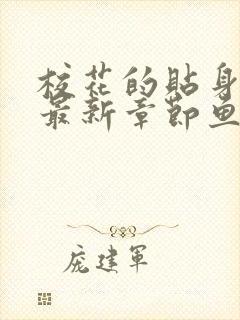 校花的贴身
最新章节鱼
庞建军